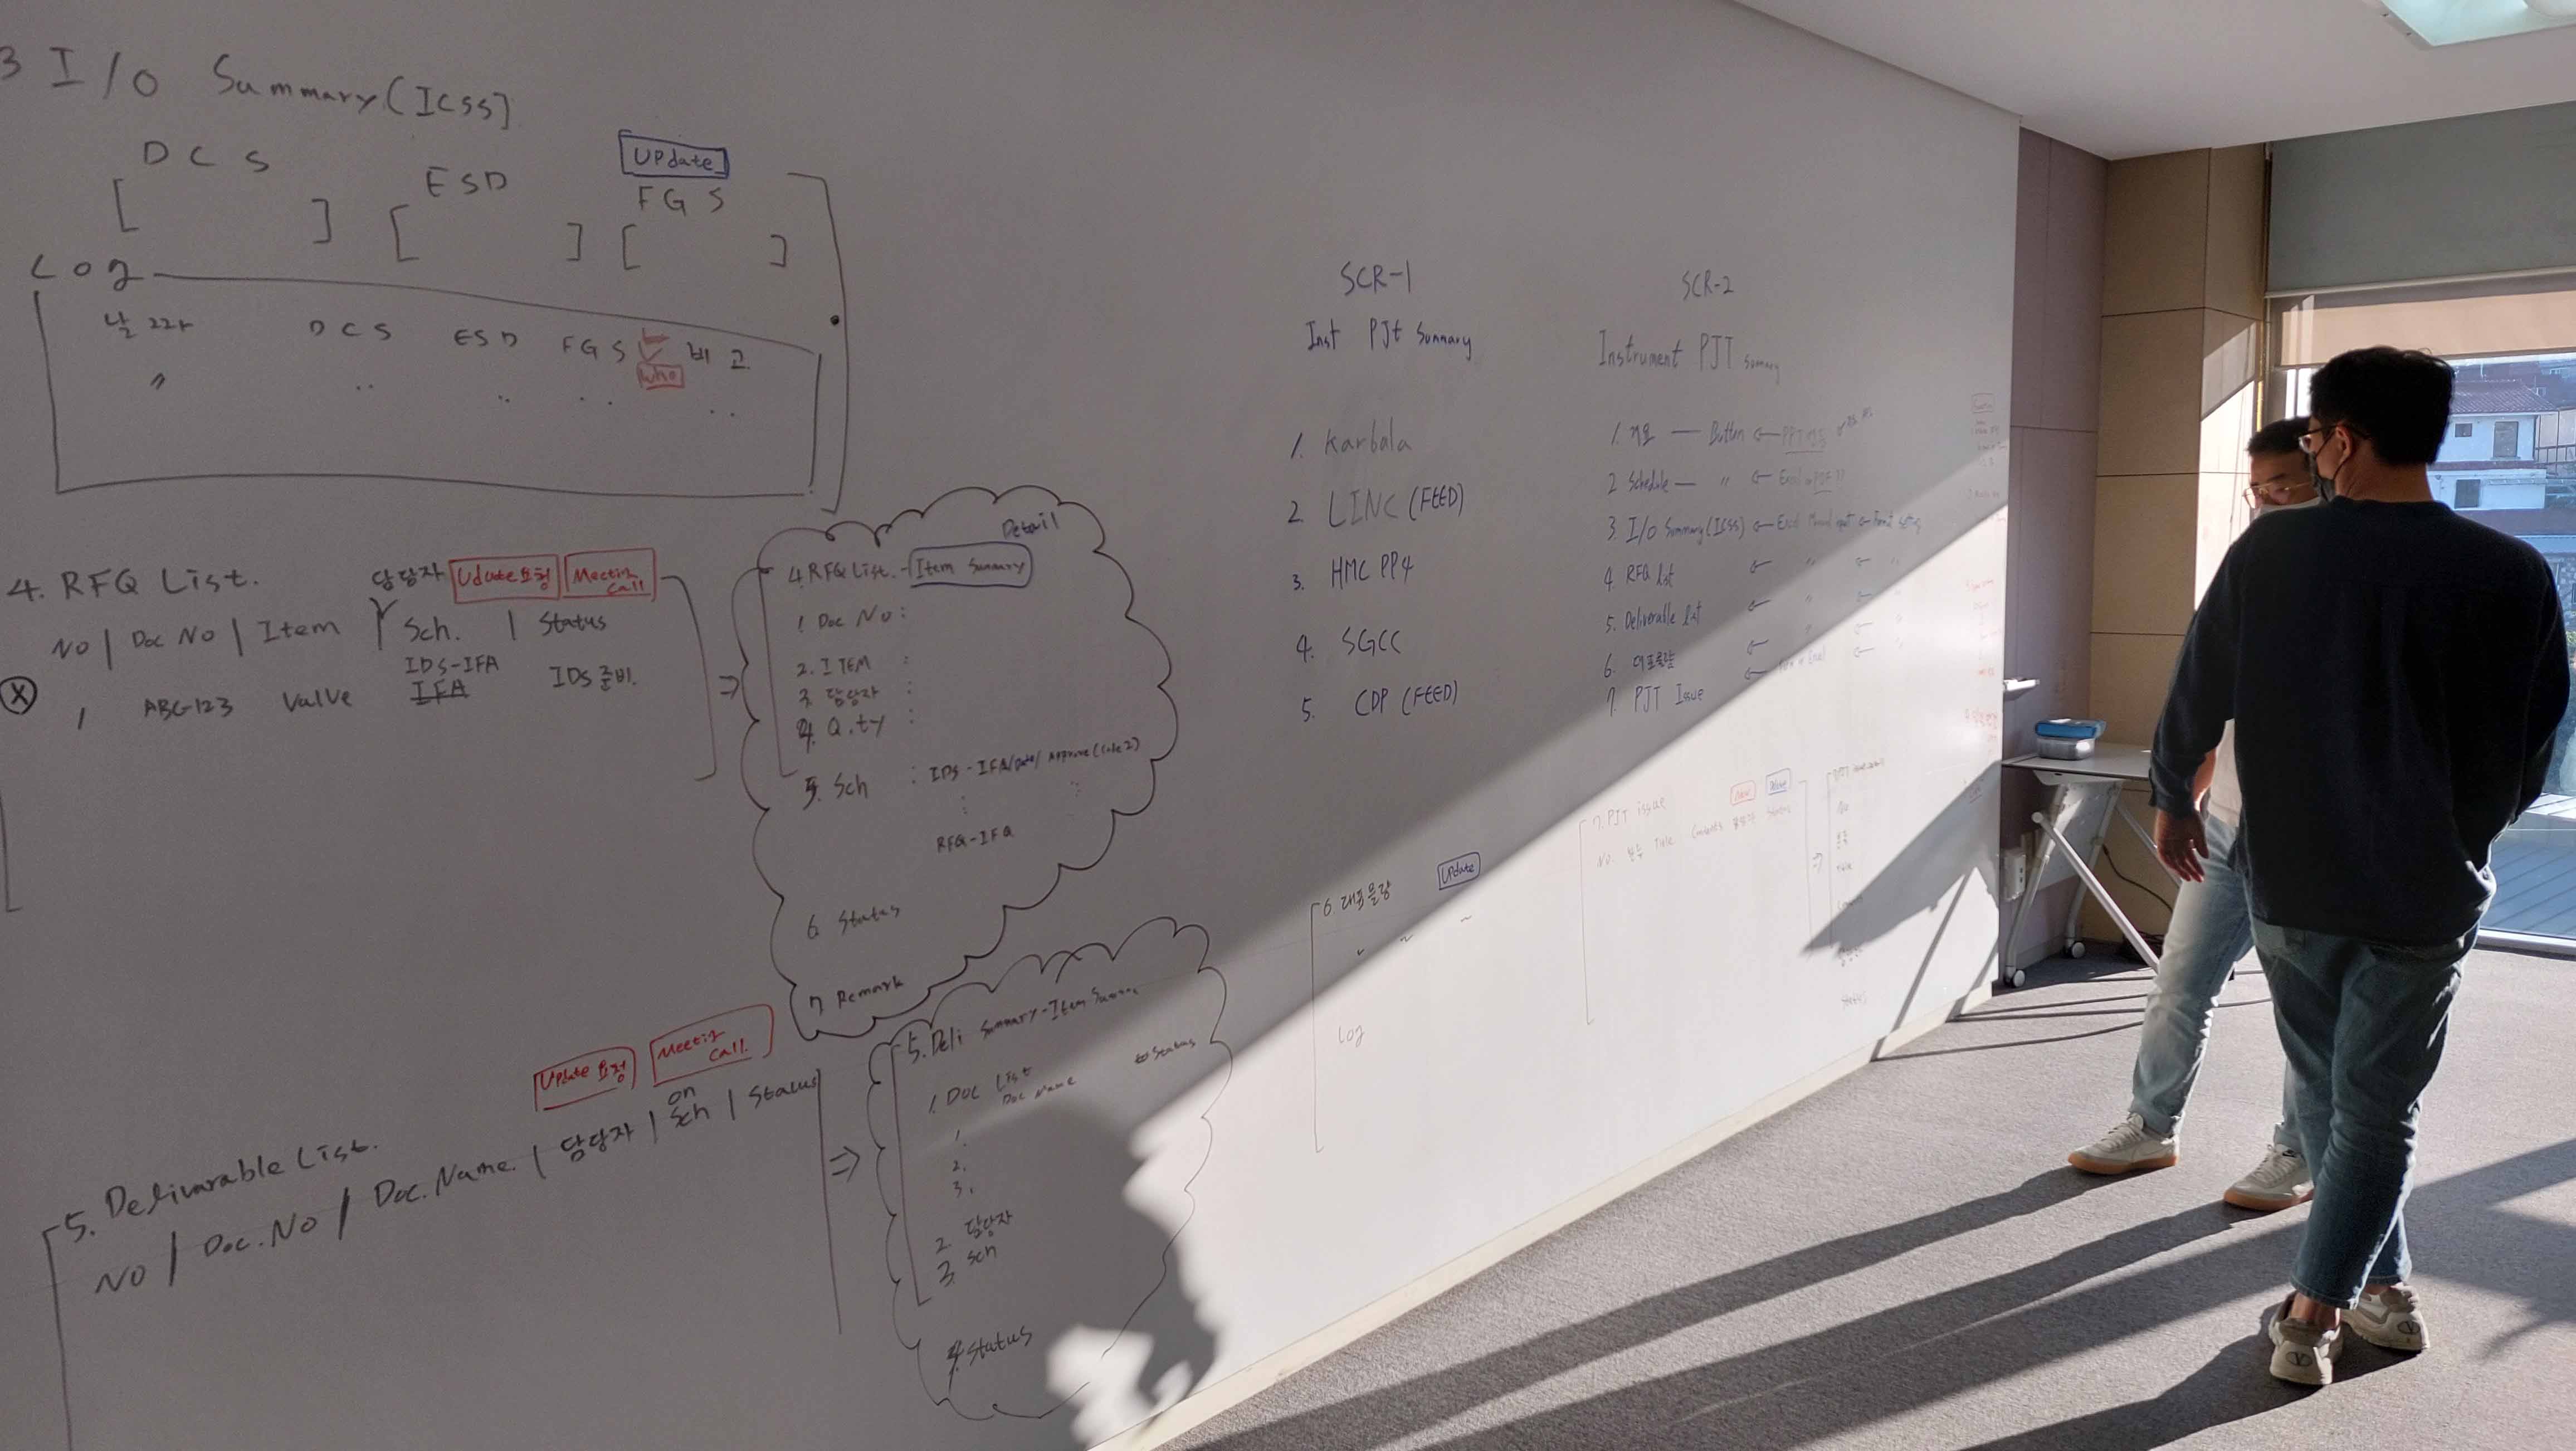 3 I/O Summary (ICSS)
Update
DCS ESD FGS
[ ] [ ] [ ]
Log
날짜 DCS ESD FGS 비고
who
〃 .. .. .. ..
4. RFQ List.
담당자 Update요청 Meeting Call
No | Doc No | Item | Sch. | Status
IDS-IFA
1 ABC-123 Valve IFA IDS준비.
Detail
4. RFQ List. - Item Summary
1. Doc No :
2. ITEM :
3. 담당자 :
4. Q.ty :
5. Sch : IDS-IFA/Date/Approve (Code 2)
RFQ-IFQ
6 Status
7 Remark
Update 요청 Meeting Call
5. Delivarable List.
on
No | Doc.No | Doc.Name. | 담당자 | Sch | Status
5. Deli Summary-Item
1. Doc List status
Doc Name
1.
2.
3.
2. 담당자
3. Sch
4. Status
SCR-1
Inst PJt Summary
1. Karbala
2. LINC (FEED)
3. HMC PP4
4. SGCC
5. CDP (FEED)
SCR-2
Instrument PJT Summary
1. 개요 — Button ←
2 Schedule — 〃 ← Excel or PDF ??
3. I/O Summary (ICSS) ← Excel Manual input ←
4 RFQ list ← 〃 ← 〃
5. Deliverable list ← 〃 ← 〃
6. 대표물량 ← 〃 ← 〃
7. PJT Issue
6. 대표물량 Update
Log
7. PJT issue
No. 분류 Title Contents 담당자 Status
No
분류
Title
Status